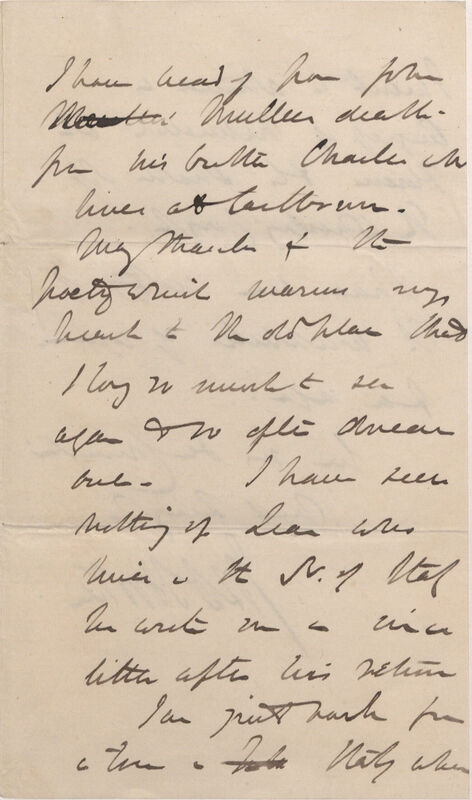 I have heard of poor John
Muller's death
from his brother Charles who
lives at Eastbourne.
Many thanks for the
poetry which warms my
heart to the old place that
I long so much to see
again & so often dream
over. I have seen
nothing of Lear who
lives in the N. of Italy
he wrote me a nice
letter after his return
I am just back from
a tour in Italy where